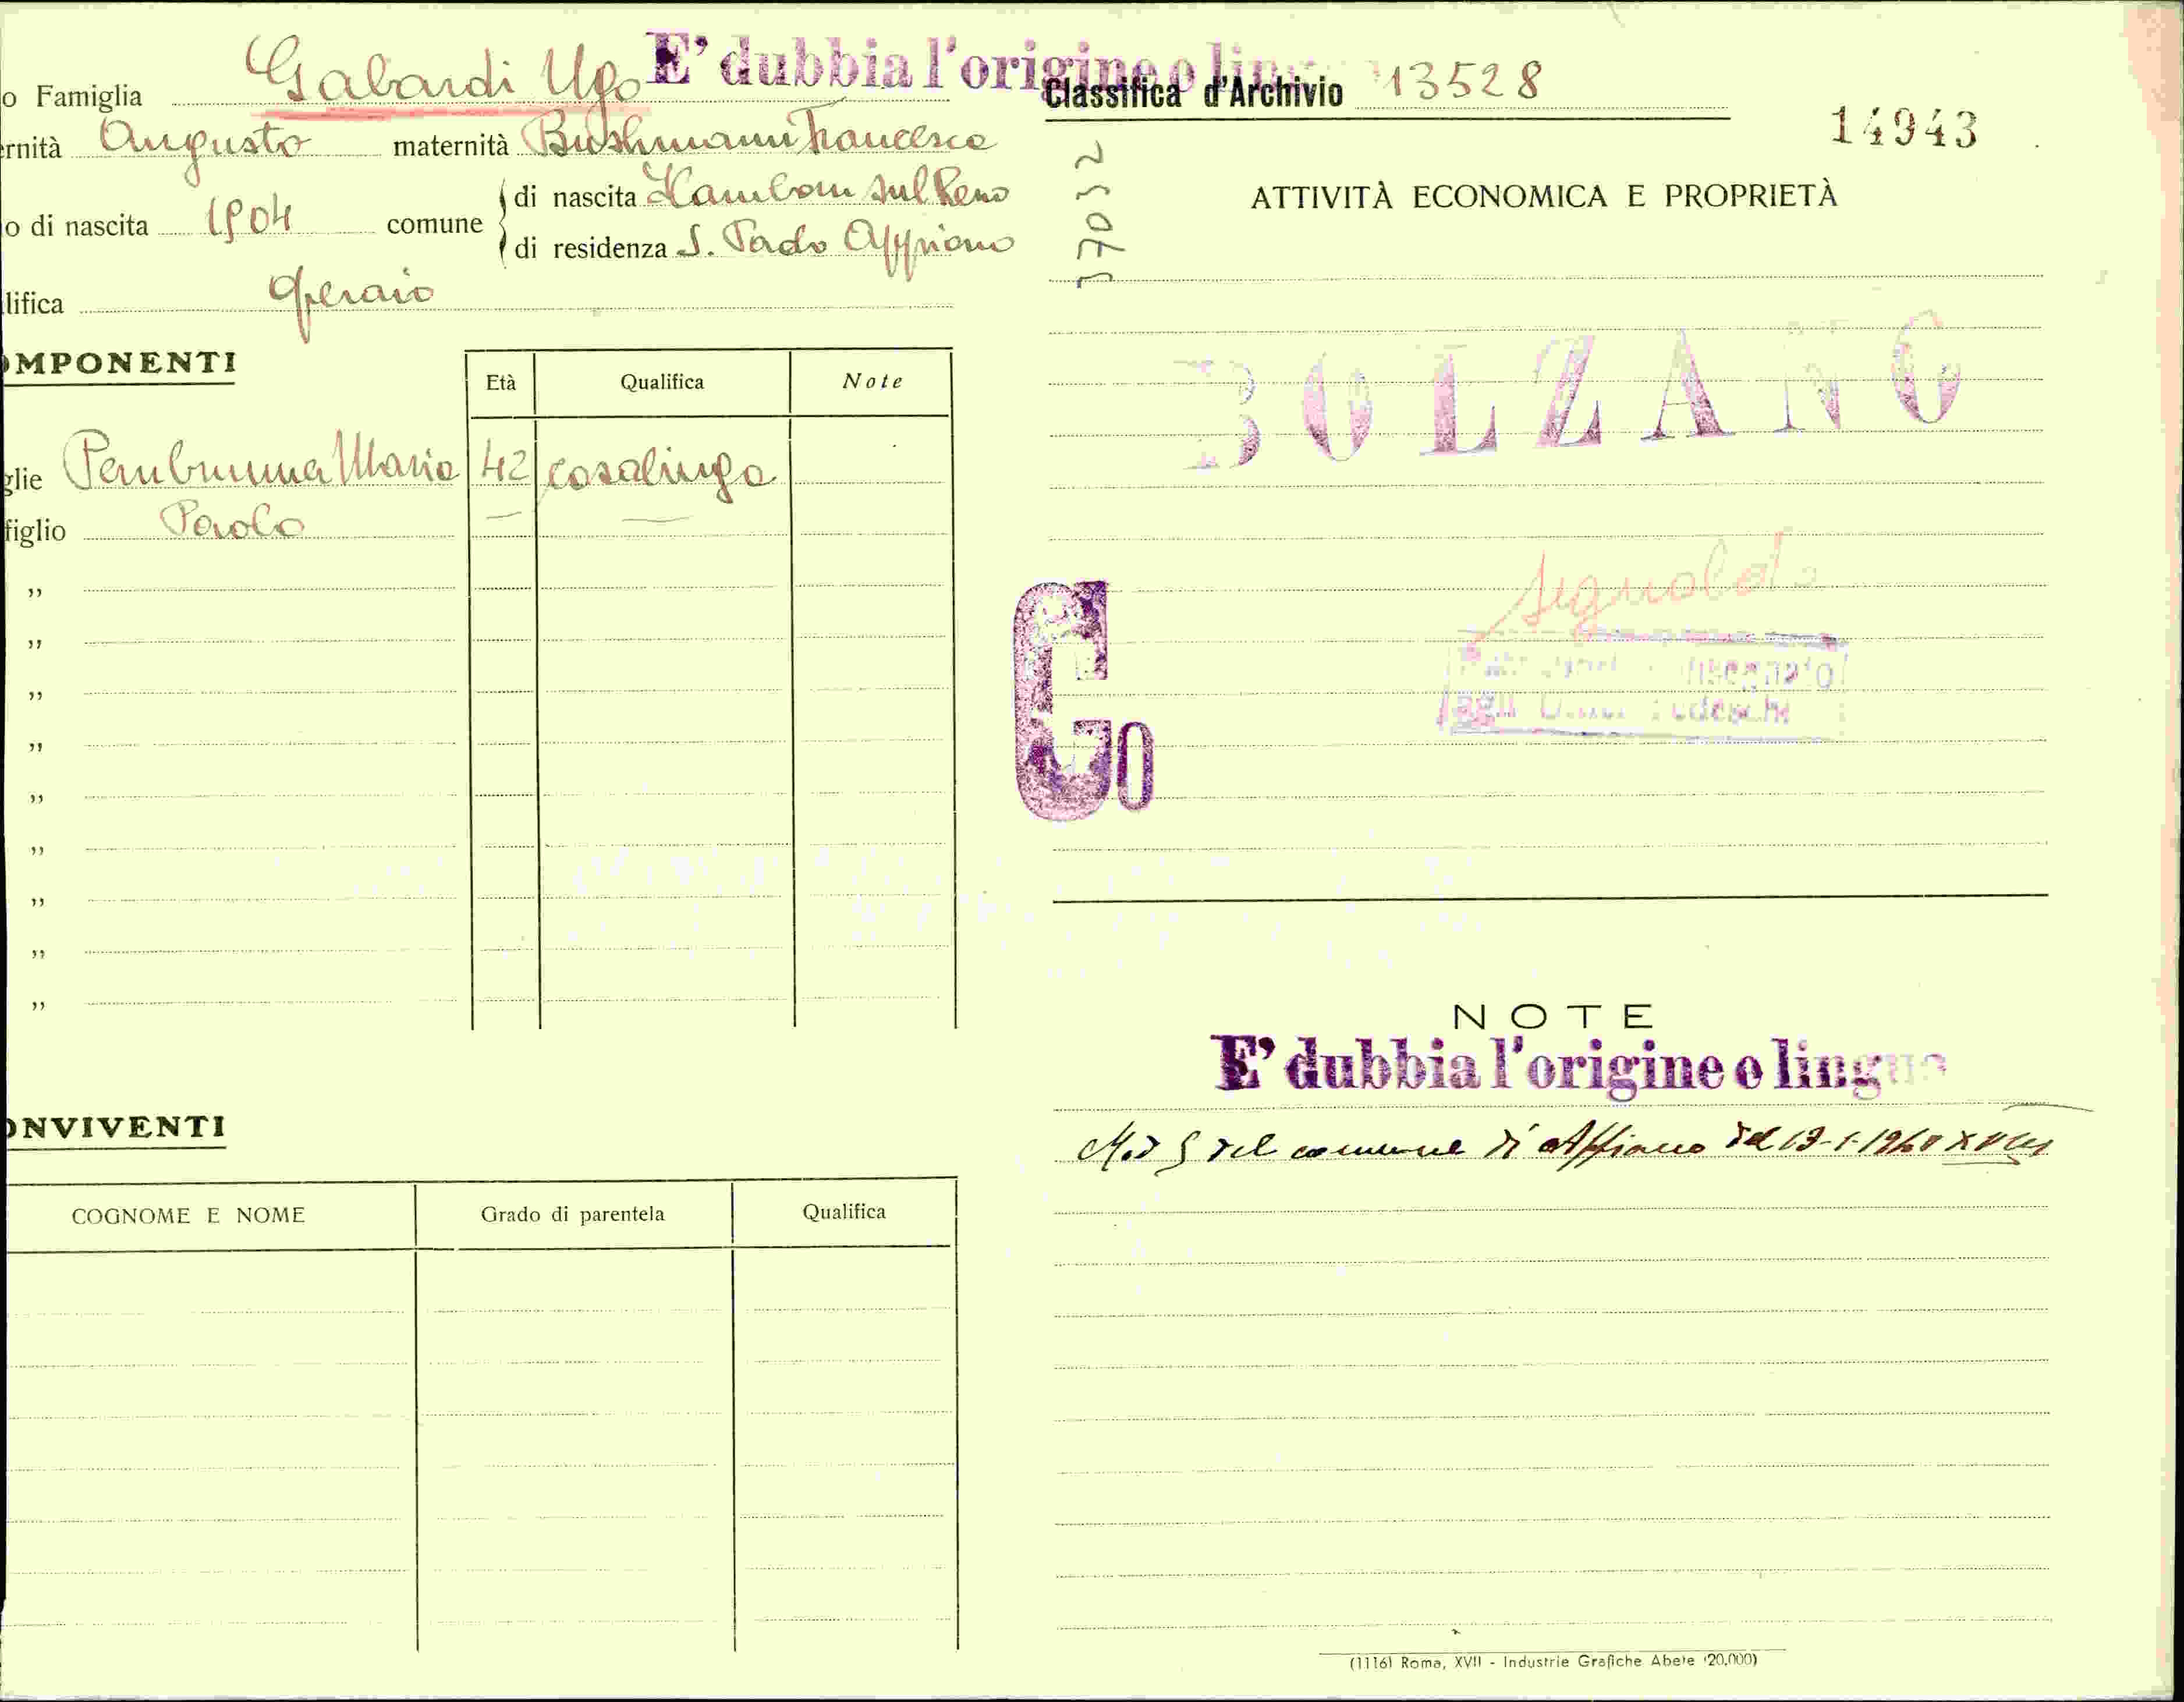 o Famiglia Gabardi Ugo
E' dubbia l'origine o lin
Classifica d'Archivio 13528
14943
37032
ernità Augusto maternità Bushmann Francesca
o di nascita 1904 comune
di nascita Hamborn sul Reno
di residenza S. Paolo Appiano
lifica Operaio
OMPONENTI
Età Qualifica Note
glie Maria 42 casalinga
figlio Paolo — —
„
„
„
„
„
„
„
„
„
ONVIVENTI
COGNOME E NOME Grado di parentela Qualifica
ATTIVITÀ ECONOMICA E PROPRIETÀ
BOLZANO
Segnalato
agli Uffici Tedeschi
Go
NOTE
E' dubbia l'origine o lingua
Mod G del comune di Appiano del 13-1-1940 XVIII
(1116) Roma, XVII - Industrie Grafiche Abete (20.000)